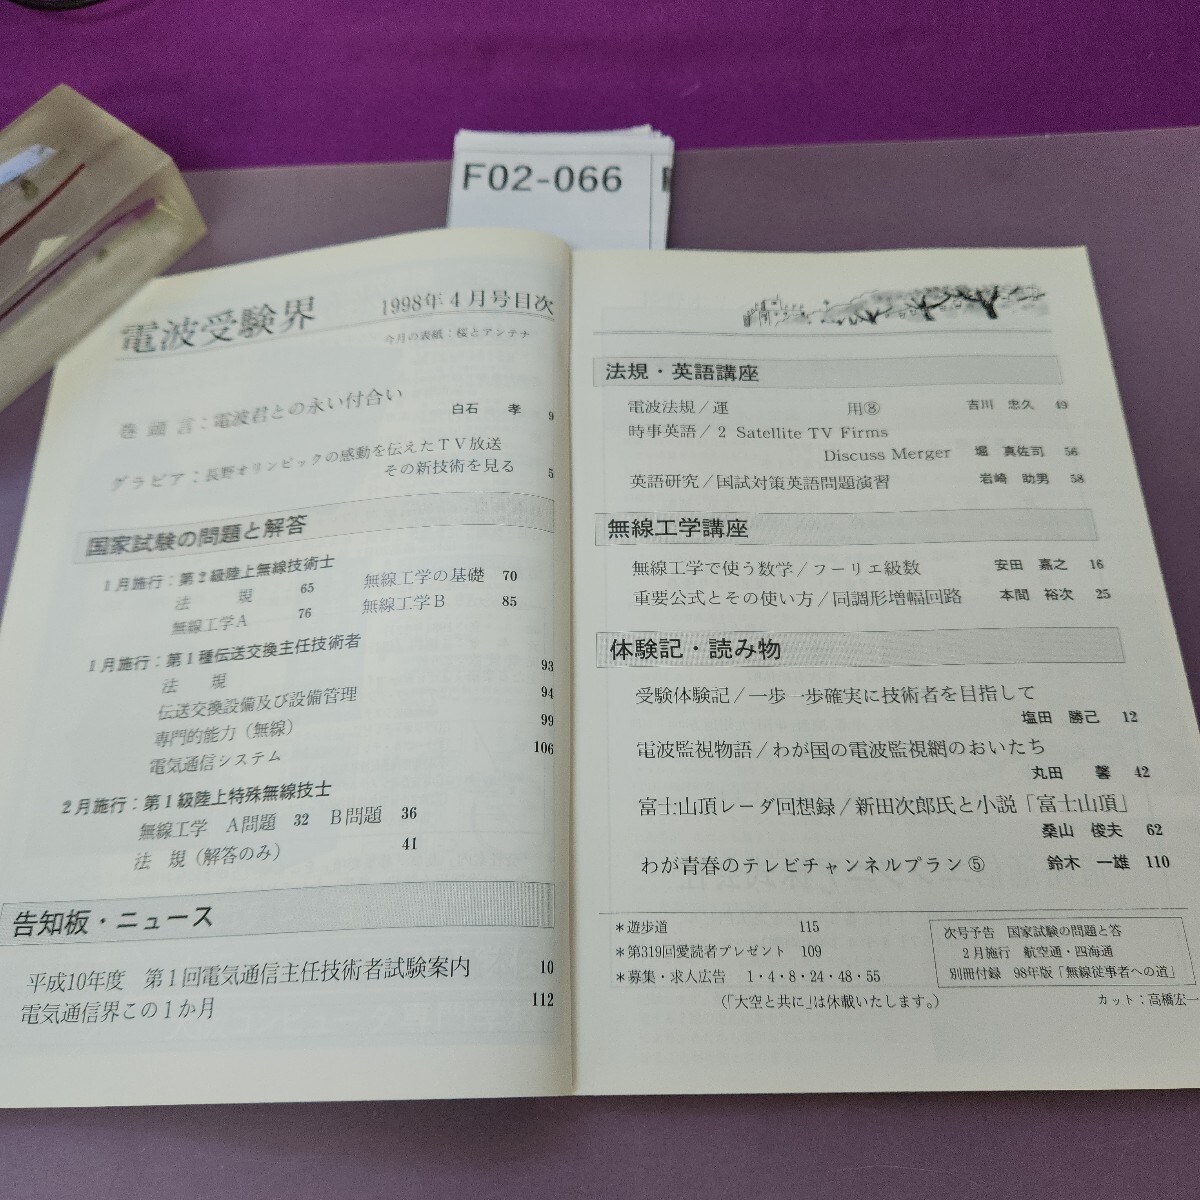 F02-066
電波受験界
1998年4月号目次
今月の表紙：桜とアンテナ
巻頭言：電波君との永い付合い
白石 孝 9
グラビア：長野オリンピックの感動を伝えたTV放送
その新技術を見る 5
国家試験の問題と解答
1月施行：第2級陸上無線技術士
法 規 65 無線工学の基礎 70
無線工学A 76 無線工学B 85
1月施行：第1種伝送交換主任技術者
法 規 93
伝送交換設備及び設備管理 94
専門的能力（無線） 99
電気通信システム 106
2月施行：第1級陸上特殊無線技士
無線工学 A問題 32 B問題 36
法 規（解答のみ） 41
告知板・ニュース
平成10年度 第1回電気通信主任技術者試験案内 10
電気通信界この1か月 112
法規・英語講座
電波法規／運 用⑧ 吉川 忠久 49
時事英語／2 Satellite TV Firms
Discuss Merger 堀 真佐司 56
英語研究／国試対策英語問題演習 岩崎 助男 58
無線工学講座
無線工学で使う数学／フーリエ級数 安田 嘉之 16
重要公式とその使い方／同調形増幅回路 本間 裕次 25
体験記・読み物
受験体験記／一歩一歩確実に技術者を目指して
塩田 勝己 12
電波監視物語／わが国の電波監視網のおいたち
丸田 馨 42
富士山頂レーダ回想録／新田次郎氏と小説「富士山頂」
桑山 俊夫 62
わが青春のテレビチャンネルプラン⑤ 鈴木 一雄 110
＊遊歩道 115
＊第319回愛読者プレゼント 109
＊募集・求人広告 1・4・8・24・48・55
（「大空と共に」は休載いたします。）
次号予告 国家試験の問題と答
2月施行 航空通・四海通
別冊付録 98年版「無線従事者への道」
カット：高橋宏一